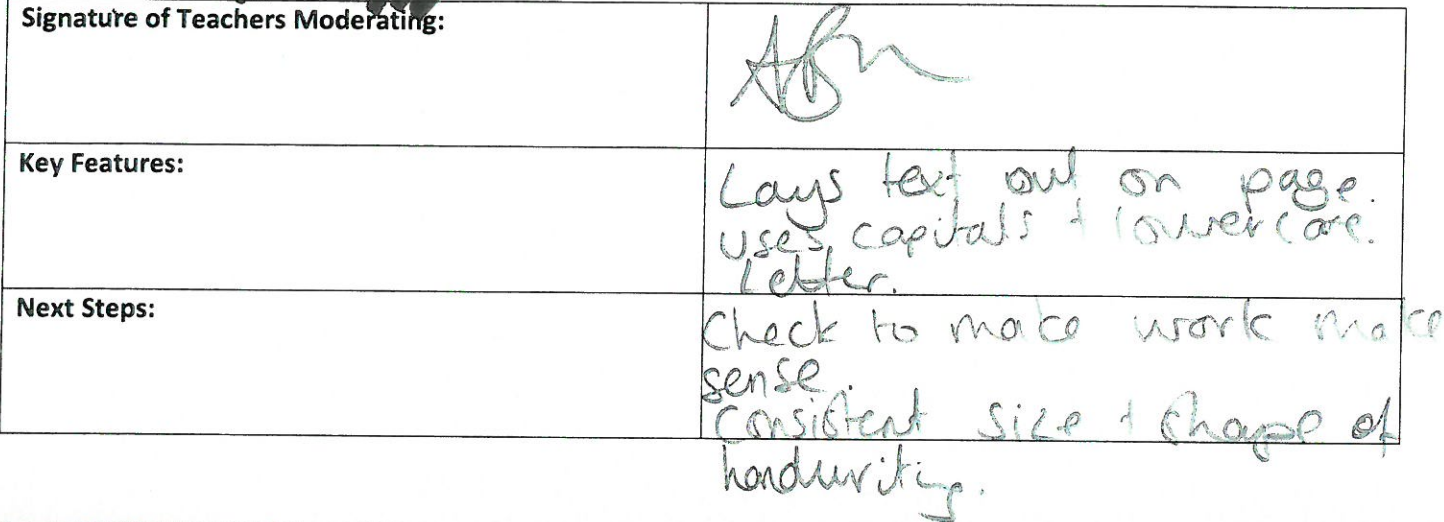 Signature of Teachers Moderating:
Key Features:
Lays text out on page.
uses capitals + lowercase.
Letter.
Next Steps:
Check to make work make
sense.
Consistent size + shape of
handwriting.